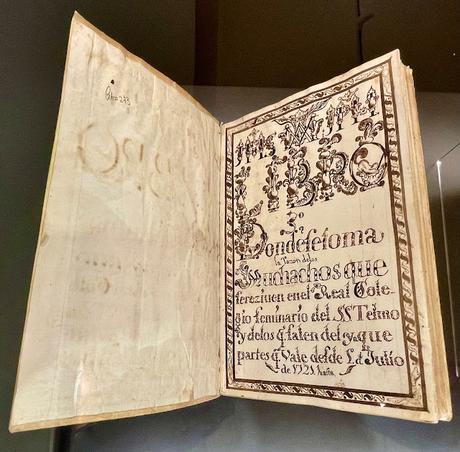 LIBRO
3º
Donde ſe toma
la razon de los
Muchachos que
ſe reziuen en el Real Cole-
gio ſeminario del Sr Telmo
y de los q ſalen del y a que
partes q Vale deſde 1 de Julio
de 1721